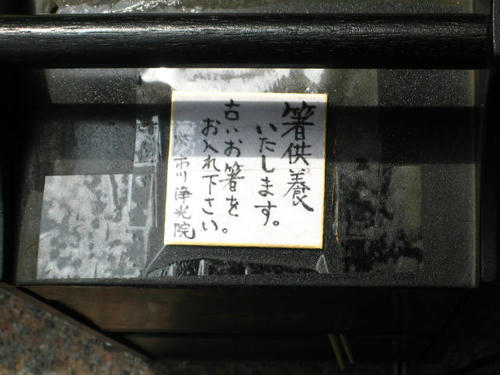 箸供養
いたします。
古いお箸を
お入れ下さい。
市川 浄光院